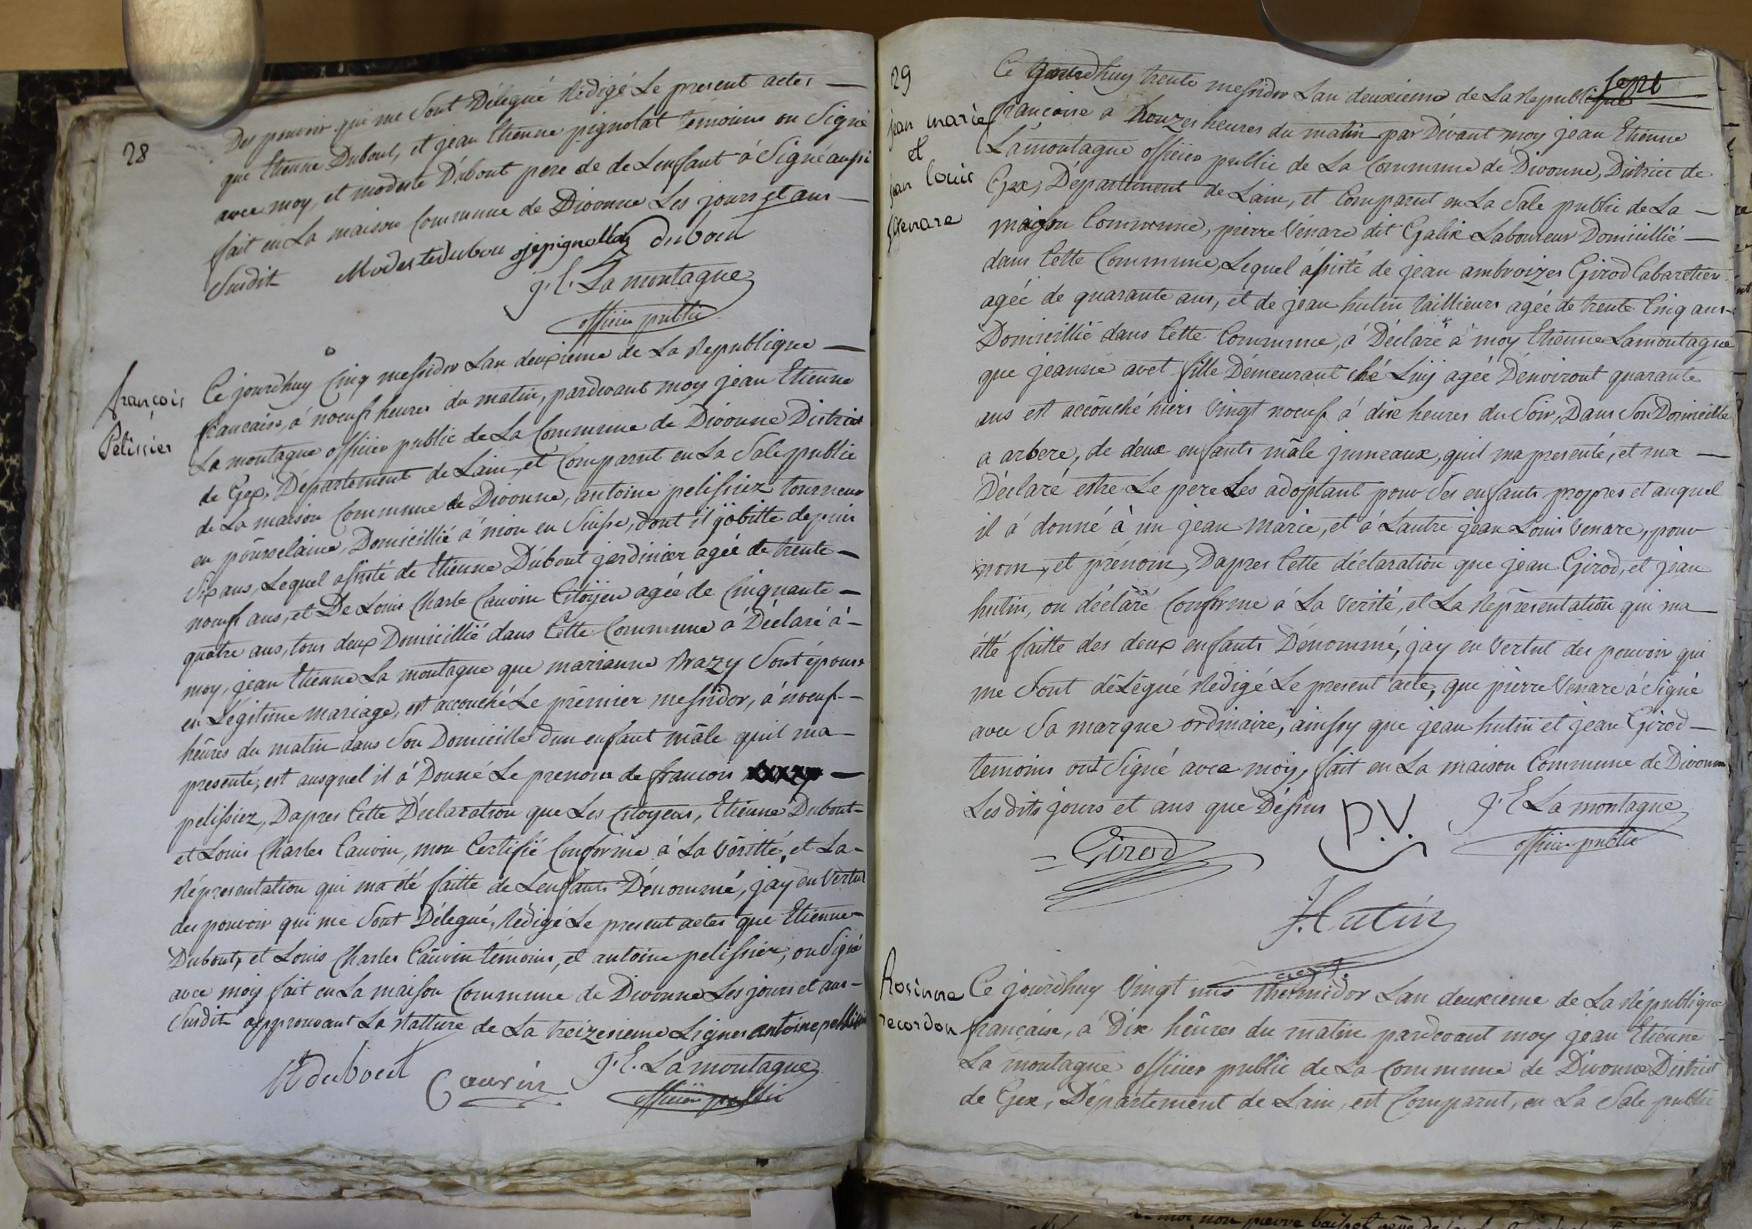 28
Des pouvoir qui me sont Délegué Rédigé Le present actes —
que Etienne Dubout, et jean Etienne pignolat temoins on Signé
avec moy, et modeste Dubout pere de de Lenfant à Signé aussi
fait en La maison Commune de Divonne Les jours et ans —
Susdit Modeste dubou jepignollaz dubout
J. E. La montagne
officier public
françois
Pelissier
Ce jourdhuy Cinq messidor Lan deuxieme de La Republique —
francaise, à noeuf heures du matin, pardevant moy jean Etienne
La montagne officier public de La Commune de Divonne District
de Gex, Département de Lain, et Comparut en La Sale public
de La maison Commune de Divonne, antoine pelissiez tourneur
en pourcelaine, Domicillié à nion en Suisse, dont il yabitte depuis
Six ans, Lequel assisté de Etienne Dubout jardinier agée de trente —
noeuf ans, et De Louis Charle Cauvin Citoyen agée de Cinquante —
quatre ans, tous deux Domicillié dans Cette Commune à Déclaré à —
moy, jean Etienne La montagne que marianne Brazy Sont épouse
en Légitime mariage, est accouché Le premier messidor, à noeuf —
heures du matin dans Son Domicille dun enfant mâle quil ma —
presenté, est auquel il à Donné Le prenom de francois —
pelissiez, Dapres Cette Déclaration que Les Citoyens, Etienne Dubout —
et Louis Charles Cauvin, mon Certifié Conforme à La Véritté, et La —
Réprésentation qui ma été faitte de Lenfants Dénommé, jay en Vertut
des pouvoir qui me Sont Délegué, Rédigé Le present actes que Etienne —
Dubout, et Louis Charles Cauvin temoins, et antoine pelissier, on Signé
avec moy fait en La maison Commune de Divonne Les jours et ans —
Susdit approuvant La Natture de La treizeieme Lignes antoine pelissie
E dubout Cauvin J. E. La montagne
officier public
29
jean marie
et
jean louis
Venare
sept
Ce jourdhuy trente messidor Lan deuxieme de La Republique
françoise a honzes heures du matin par Devant moy jean Etienne
Lamontagne officier public de La Commune de Divonne, District de
Gex, Département de Lain, et Comparut en La Sale public de La —
maison Commune, pierre Vénare dit Galix Laboureur Domicillié —
dans Cette Commune, Lequel assisté de jean ambroizes Girod Cabaretier
agée de quarante ans, et de jean hutin taillieurs agée de trente Cinq ans
Domicillié dans Cette Commune, à Déclaré à moy Etienne Lamontagne
que jeanne avet fille Démeurant ché Luy agée Dénviront quarante
ans est accouché hiers Vingt noeuf à dix heures du Soir, Dans Son Domicille
a arbere, de deux enfants mâle jumeaux, quil ma presenté, et ma —
Déclaré estre Le pere Les adoptant pour Ses enfants propres et auquel
il à donné à un jean marie, et à Lautre jean Louis Venare, pour
nom, et prénom, Dapres Cette déclaration que jean Girod, et jean
hutin, on déclaré Conforme à La Verité, et La Représentation qui ma —
été faitte des deux enfants Dénommé, jay en Vertut des pouvoir qui
me Sont délégué Rédigé Le present acte, que pierre Venare à Signé
avec Sa marque ordinaire, ainssy que jean hutin et jean Girod —
temoins ont Signé avec moy, fait en La maison Commune de Divonne
Lesdits jours et ans que Désus P.V. J. E La montagne
= Girod officier public
J. Hutin
Rosinne
recordon
Ce jourdhuy Vingt un Thermidor Lan deuxieme de La République
française, a Dix heures du matin pardevant moy jean Etienne
La montagne officier public de La Commune de Divonne District
de Gex, Département de Lain, est Comparut, en La Sale public